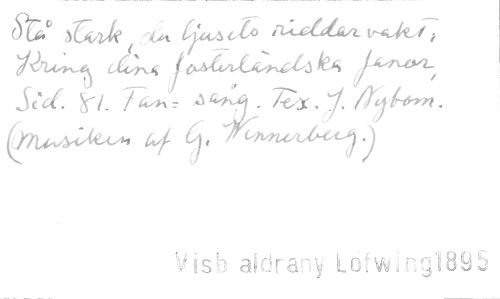 Stå stark, du ljusets riddarvakt,
Kring dina fosterländska fanor,
Sid. 81. Fan= sång. Tex. J. Nybom.
(Musiken af G. Wennerberg.)
Visb aldrany Löfwing1895